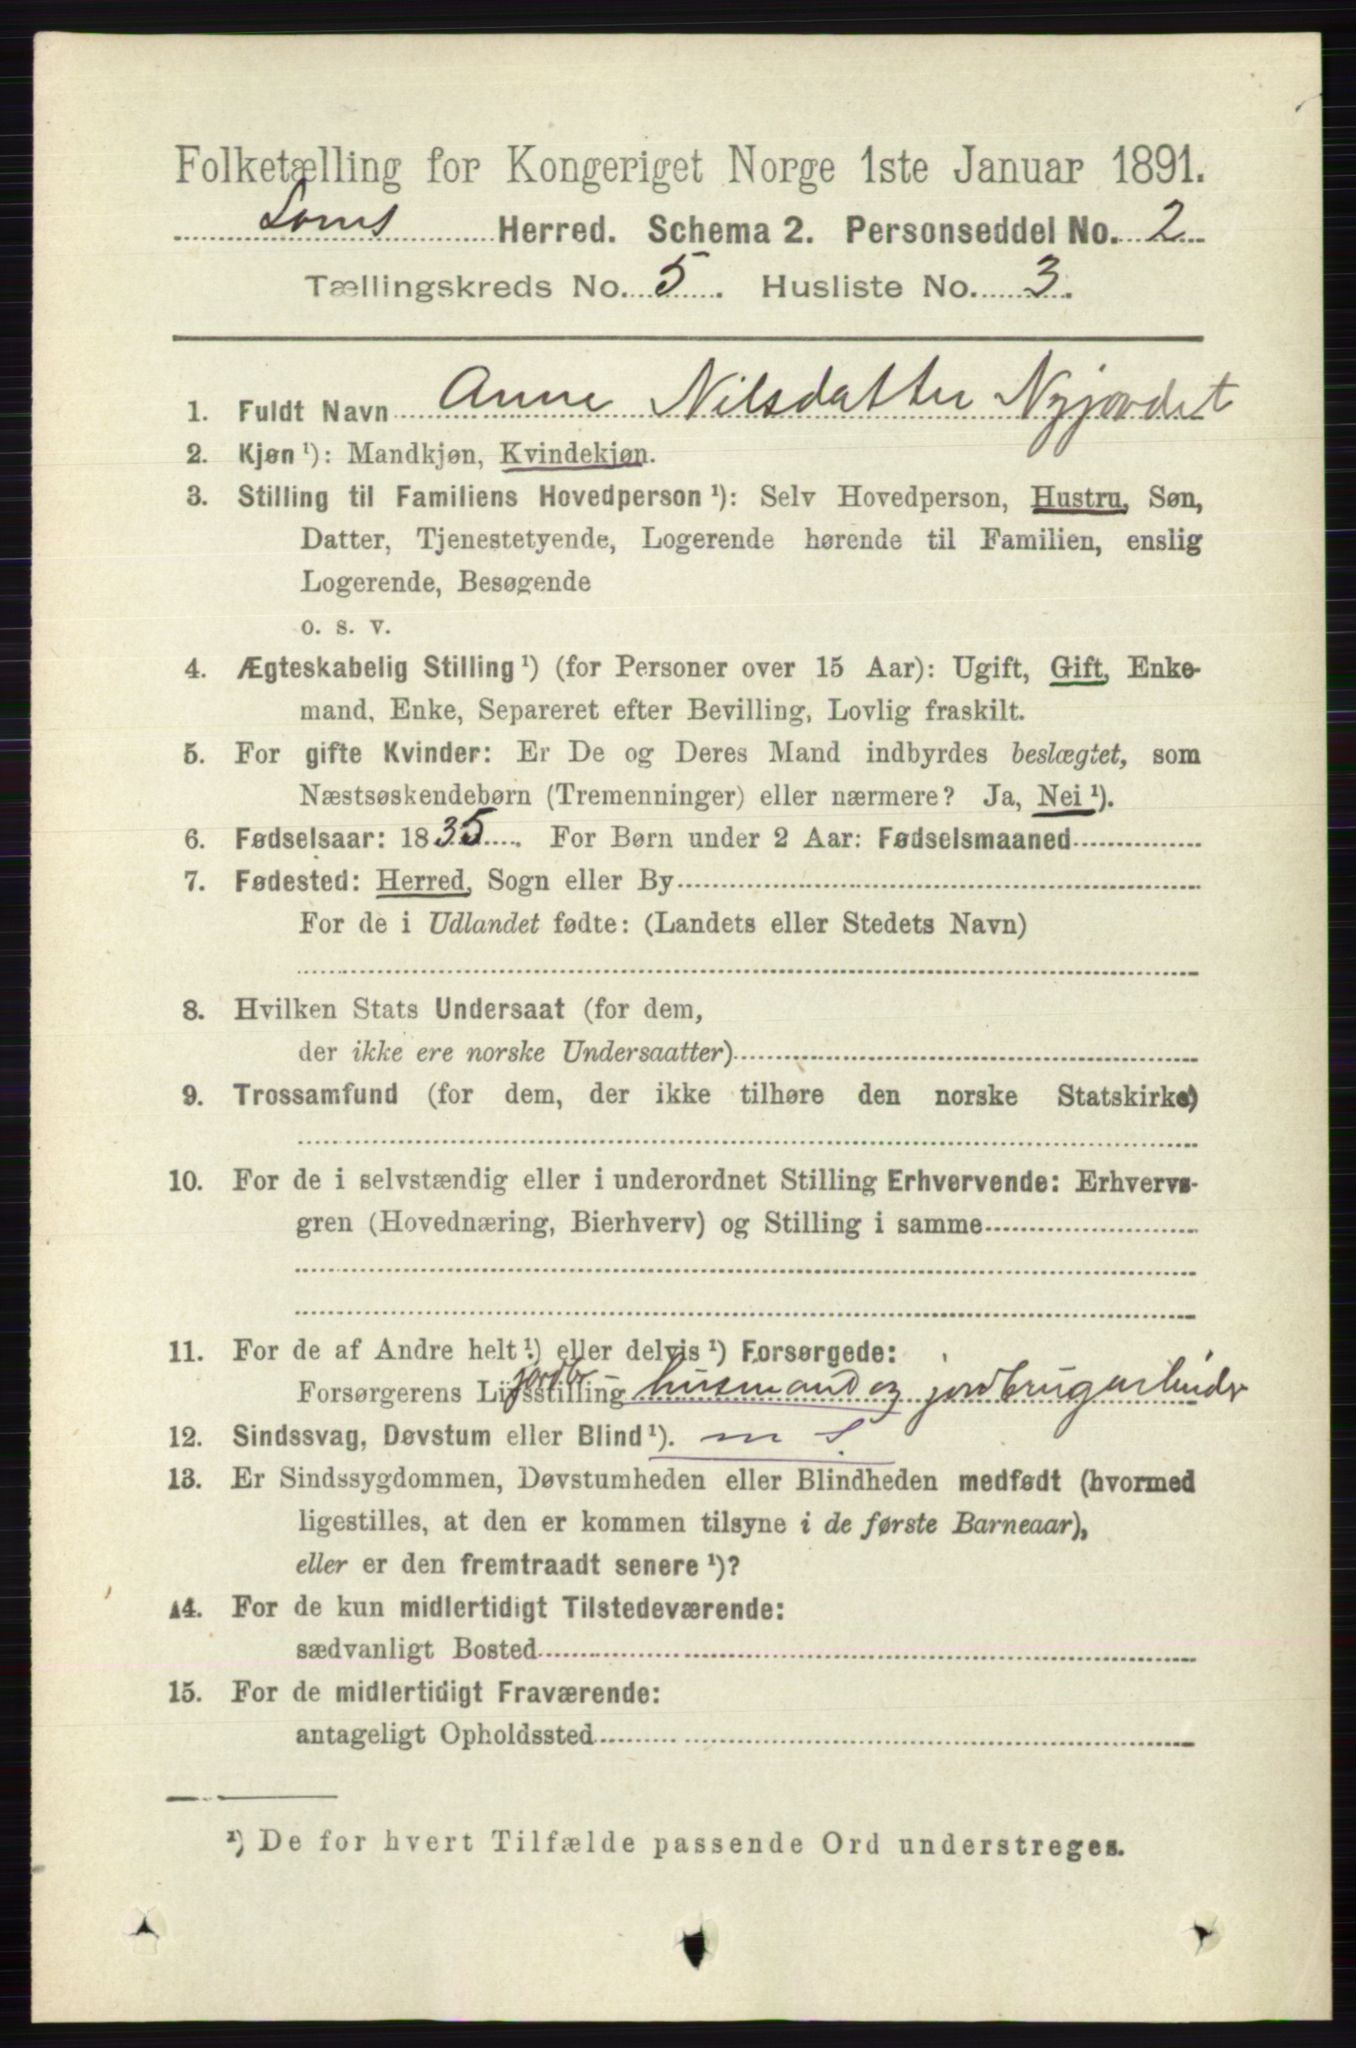 Folketælling for Kongeriget Norge 1ste Januar 1891.
Loms Herred. Schema 2. Personseddel No. 2
Tællingskreds No. 5. Husliste No. 3.
1. Fuldt Navn Anne Nilsdatter Nyjordet
2. Kjøn ¹): Mandkjøn, Kvindekjøn.
3. Stilling til Familiens Hovedperson ¹): Selv Hovedperson, Hustru, Søn,
Datter, Tjenestetyende, Logerende hørende til Familien, enslig
Logerende, Besøgende
o. s. v.
4. Ægteskabelig Stilling ¹) (for Personer over 15 Aar): Ugift, Gift, Enke-
mand, Enke, Separeret efter Bevilling, Lovlig fraskilt.
5. For gifte Kvinder: Er De og Deres Mand indbyrdes beslægtet, som
Næstsøskendebørn (Tremenninger) eller nærmere? Ja, Nei ¹).
6. Fødselsaar: 1835. For Børn under 2 Aar: Fødselsmaaned
7. Fødested: Herred, Sogn eller By
For de i Udlandet fødte: (Landets eller Stedets Navn)
8. Hvilken Stats Undersaat (for dem,
der ikke ere norske Undersaatter)
9. Trossamfund (for dem, der ikke tilhøre den norske Statskirke)
10. For de i selvstændig eller i underordnet Stilling Erhvervende: Erhvervs-
gren (Hovednæring, Bierhverv) og Stilling i samme
11. For de af Andre helt ¹) eller delvis ¹) Forsørgede:
jordbr
Forsørgerens Livsstilling husmand og jordbrugarbeider
12. Sindssvag, Døvstum eller Blind ¹). m S
13. Er Sindssygdommen, Døvstumheden eller Blindheden medfødt (hvormed
ligestilles, at den er kommen tilsyne i de første Barneaar),
eller er den fremtraadt senere ¹)?
14. For de kun midlertidigt Tilstedeværende:
sædvanligt Bosted
15. For de midlertidigt Fraværende:
antageligt Opholdssted
¹) De for hvert Tilfælde passende Ord understreges.